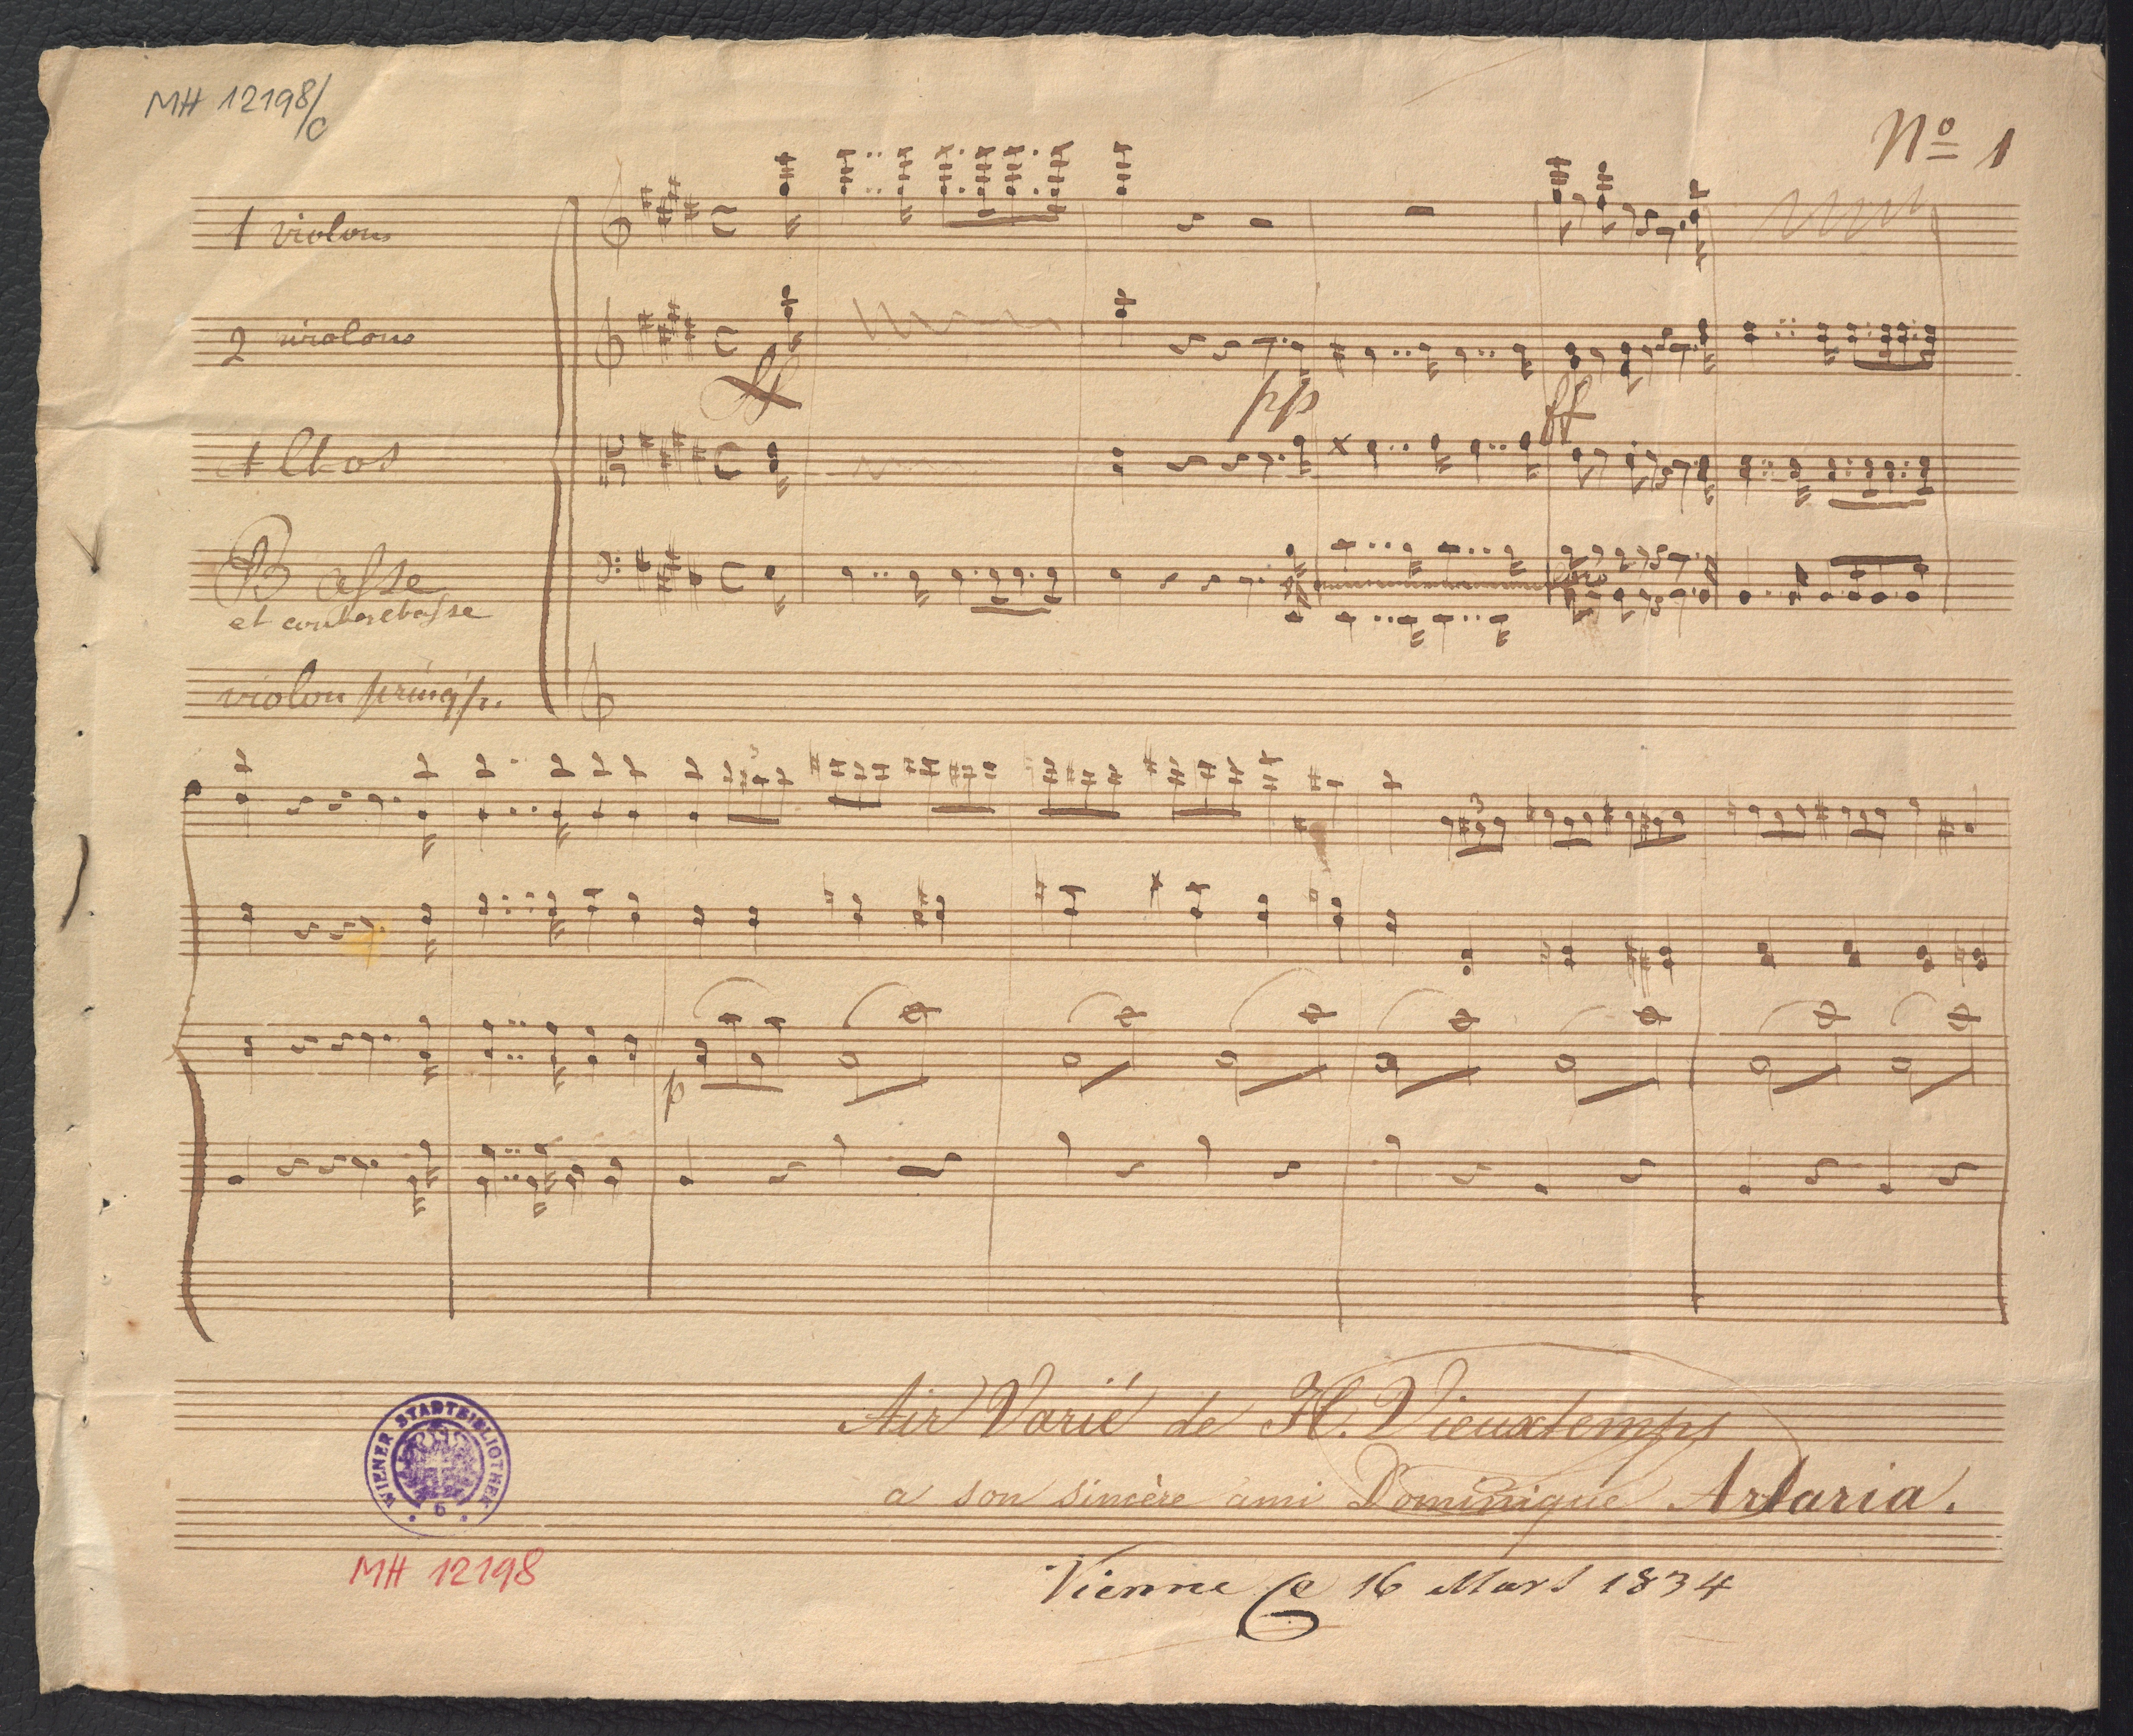 MH 12198/c
Nº 1
1 violons
2 violons
ff
pp
ff
Altos
Basse
et contrebasse
violon princip.
3
3
p
Air Varié de H. Vieuxtemps
a son sincère ami Dominique Artaria.
Vienne le 16 Mars 1834
WIENER STADTBIBLIOTHEK
6
MH 12198